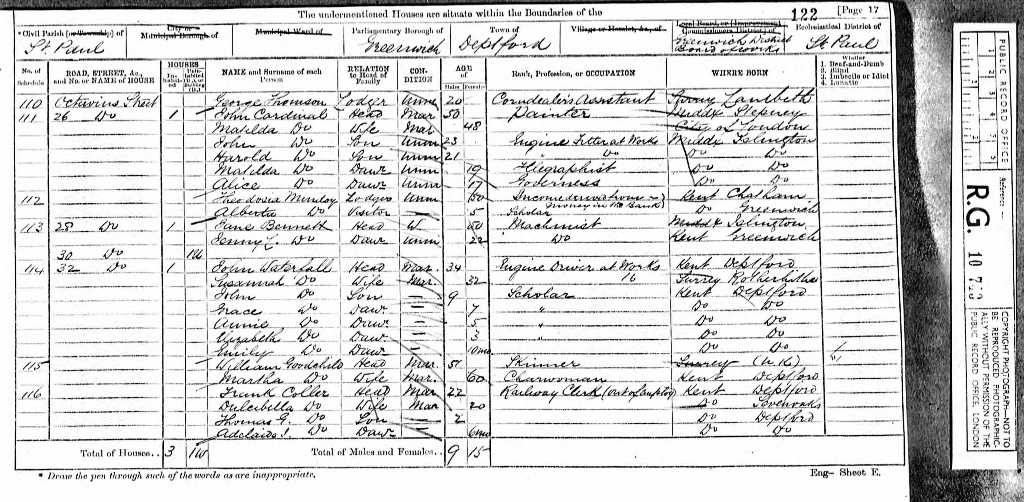 The undermentioned Houses are situate within the Boundaries of the
122 [Page 17
* Civil Parish [or Township] of
St. Paul
City or Municipal Borough of
Municipal Ward of
Parliamentary Borough of
Greenwich
Town of
Deptford
Village or Hamlet, &c., of
Local Board, or [Improvement Commissioners District] of
Greenwich District
Board of Works
Ecclesiastical District of
St. Paul
No. of Schedule
ROAD, STREET, &c., and No. or NAME of HOUSE
HOUSES
NAME and Surname of each Person
RELATION to Head of Family
CON-DITION
AGE of
Males Females
Rank, Profession, or OCCUPATION
WHERE BORN
Whether
1. Deaf-and-Dumb
2. Blind
3. Imbecile or Idiot
4. Lunatic
110 Octavius Street George Thomson Lodger Unm 20 Corndealer's Assistant Lambeth
111 26 Do 1 John Cardinal Head Mar 50 Painter Middx Stepney
Matilda Do Wife Mar 48 City of London
John Do Son Unm 23 Engine Fitter at Works Middx Islington
Harold Do Son Unm 21 " Do Do Do
Matilda Do Dawr Unm 19 Telegraphist Do Do
Alice Do Dawr Unm 17 Governess Do Do
112 Theodosia Lodger Unm 50 Income Kent Chatham
Alberta Do Visitor 5 Scholar money in the Bank) Do Greenwich
113 28 Do 1 Jane Bennett Head W. 60 Machinist Middx Islington
Jenny L. Do Dawr Unm 22 Do Kent Greenwich
30 Do 1U
114 32 Do 1 John Waterfall Head Mar. 34 Engine Driver at Works Kent Deptford
Susannah Do Wife Mar. 32 Surrey Rotherhithe
John Do Son 9 Scholar Kent Deptford
Grace Do Dawr 7 " Do Do
Annie Do Dawr 5 " Do Do
Elizabeth Do Dawr 3 " Do Do
Emily Do Dawr 10mo Do Do
115 William Goodchild Head Mar 51 Skinner Surrey (N.K.)
Martha Do Wife Mar. 60 Charwoman Kent Deptford
116 Frank Coller Head Mar 22 Railway Clerk (out of employ) Kent Deptford
Dulcibella Do Wife Mar 20 Do Sevenoaks
Thomas G. Do Son 2 Do Deptford
Adelaide J. Do Dawr 6mo Do Do
Total of Houses.. 3 1U Total of Males and Females.. 9 15
* Draw the pen through such of the words as are inappropriate.
Eng— Sheet E.
PUBLIC RECORD OFFICE
R.G. 10 / 713
COPYRIGHT PHOTOGRAPH—NOT TO BE REPRODUCED PHOTOGRAPHICALLY WITHOUT PERMISSION OF THE PUBLIC RECORD OFFICE, LONDON